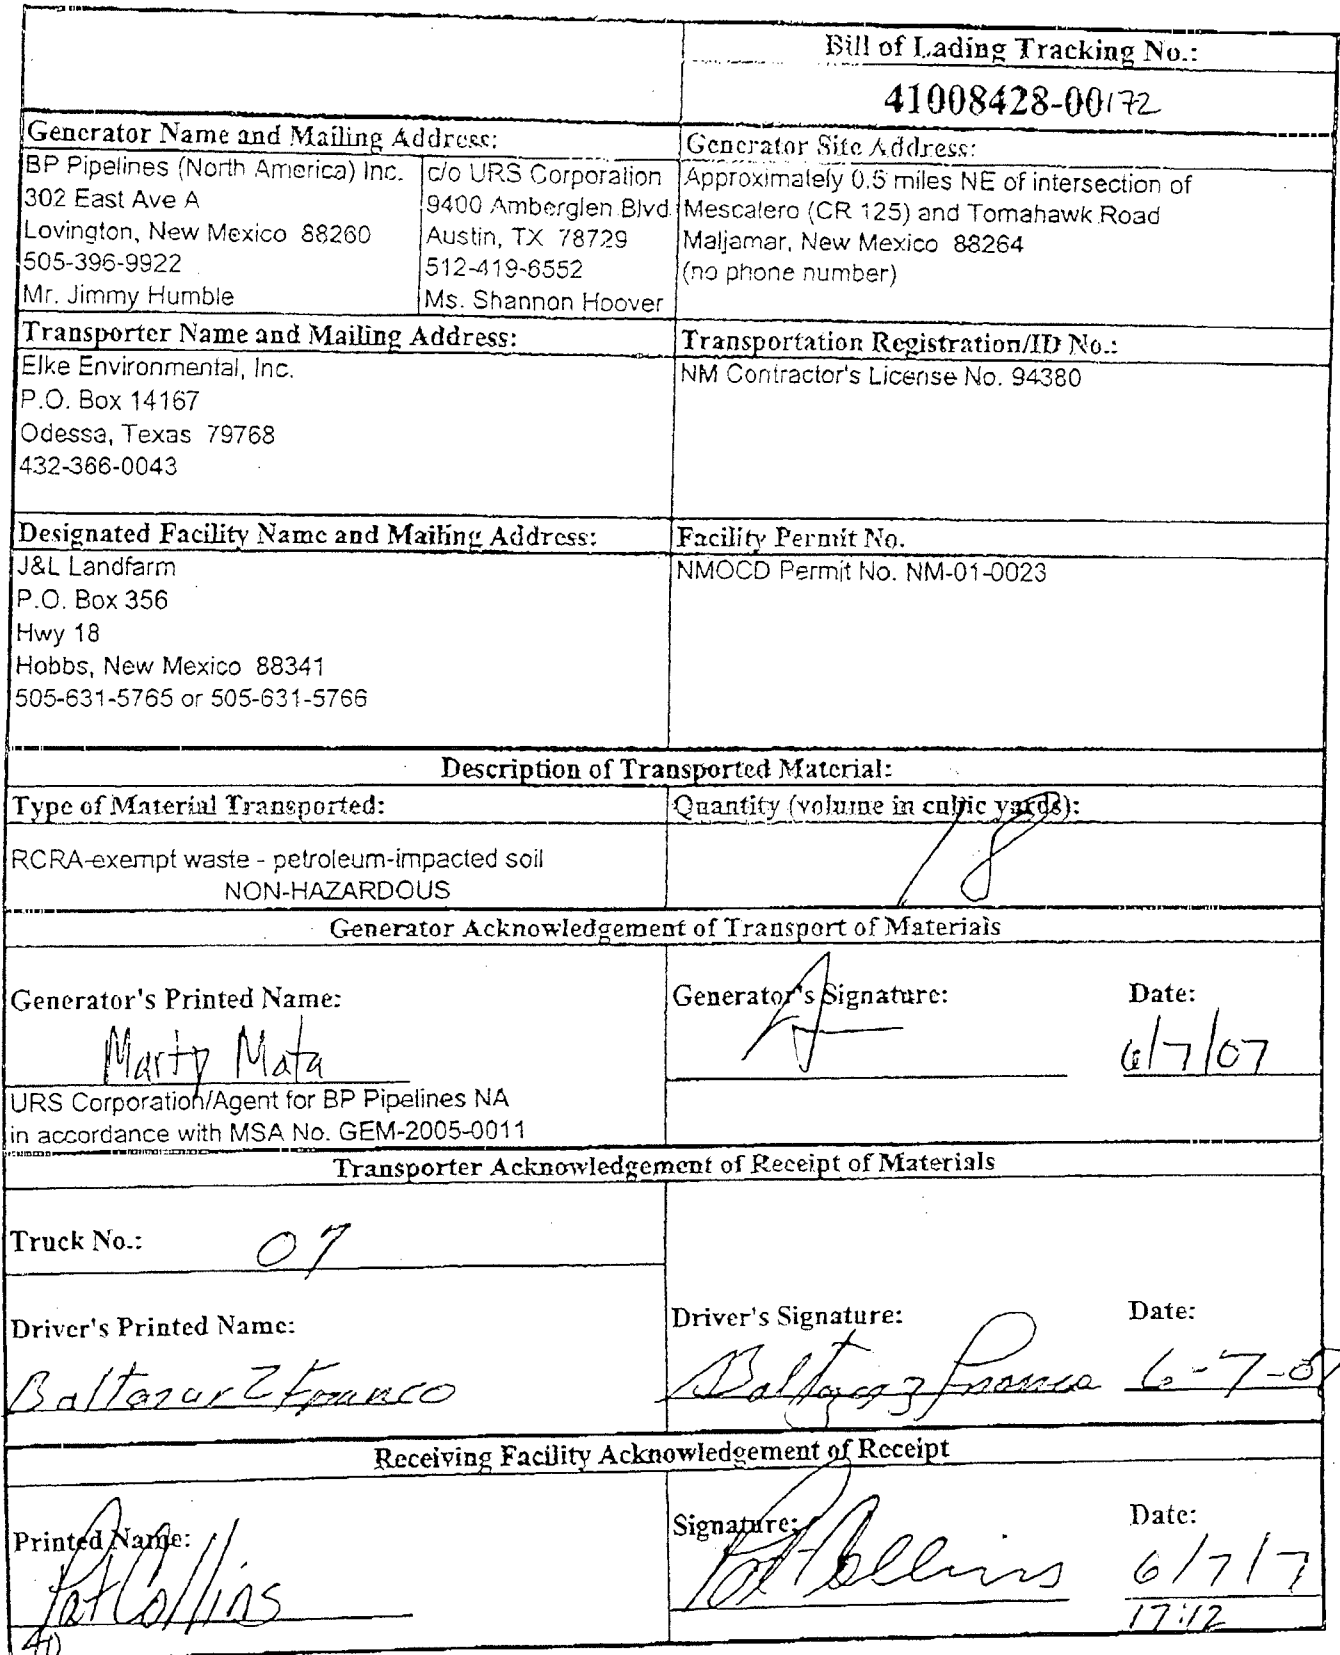 Bill of Lading Tracking No.:
41008428-00172
Generator Name and Mailing Address:
BP Pipelines (North America) Inc.
302 East Ave A
Lovington, New Mexico 88260
505-396-9922
Mr. Jimmy Humble
c/o URS Corporation
9400 Amberglen Blvd
Austin, TX 78729
512-419-6552
Ms. Shannon Hoover
Generator Site Address:
Approximately 0.5 miles NE of intersection of
Mescalero (CR 125) and Tomahawk Road
Maljamar, New Mexico 88264
(no phone number)
Transporter Name and Mailing Address:
Elke Environmental, Inc.
P.O. Box 14167
Odessa, Texas 79768
432-366-0043
Transportation Registration/ID No.:
NM Contractor's License No. 94380
Designated Facility Name and Mailing Address:
J&L Landfarm
P.O. Box 356
Hwy 18
Hobbs, New Mexico 88341
505-631-5765 or 505-631-5766
Facility Permit No.
NMOCD Permit No. NM-01-0023
Description of Transported Material:
Type of Material Transported:
RCRA-exempt waste - petroleum-impacted soil
NON-HAZARDOUS
Quantity (volume in cubic yards):
18
Generator Acknowledgement of Transport of Materials
Generator's Printed Name:
Marty Mata
URS Corporation/Agent for BP Pipelines NA
in accordance with MSA No. GEM-2005-0011
Generator's Signature:
Date:
6/7/07
Transporter Acknowledgement of Receipt of Materials
Truck No.: 07
Driver's Printed Name:
Baltazar Z Franco
Driver's Signature:
Baltazar Z Franco
Date:
6-7-07
Receiving Facility Acknowledgement of Receipt
Printed Name:
Pat Collins
40
Signature:
Pat Collins
Date:
6/7/7
17:12